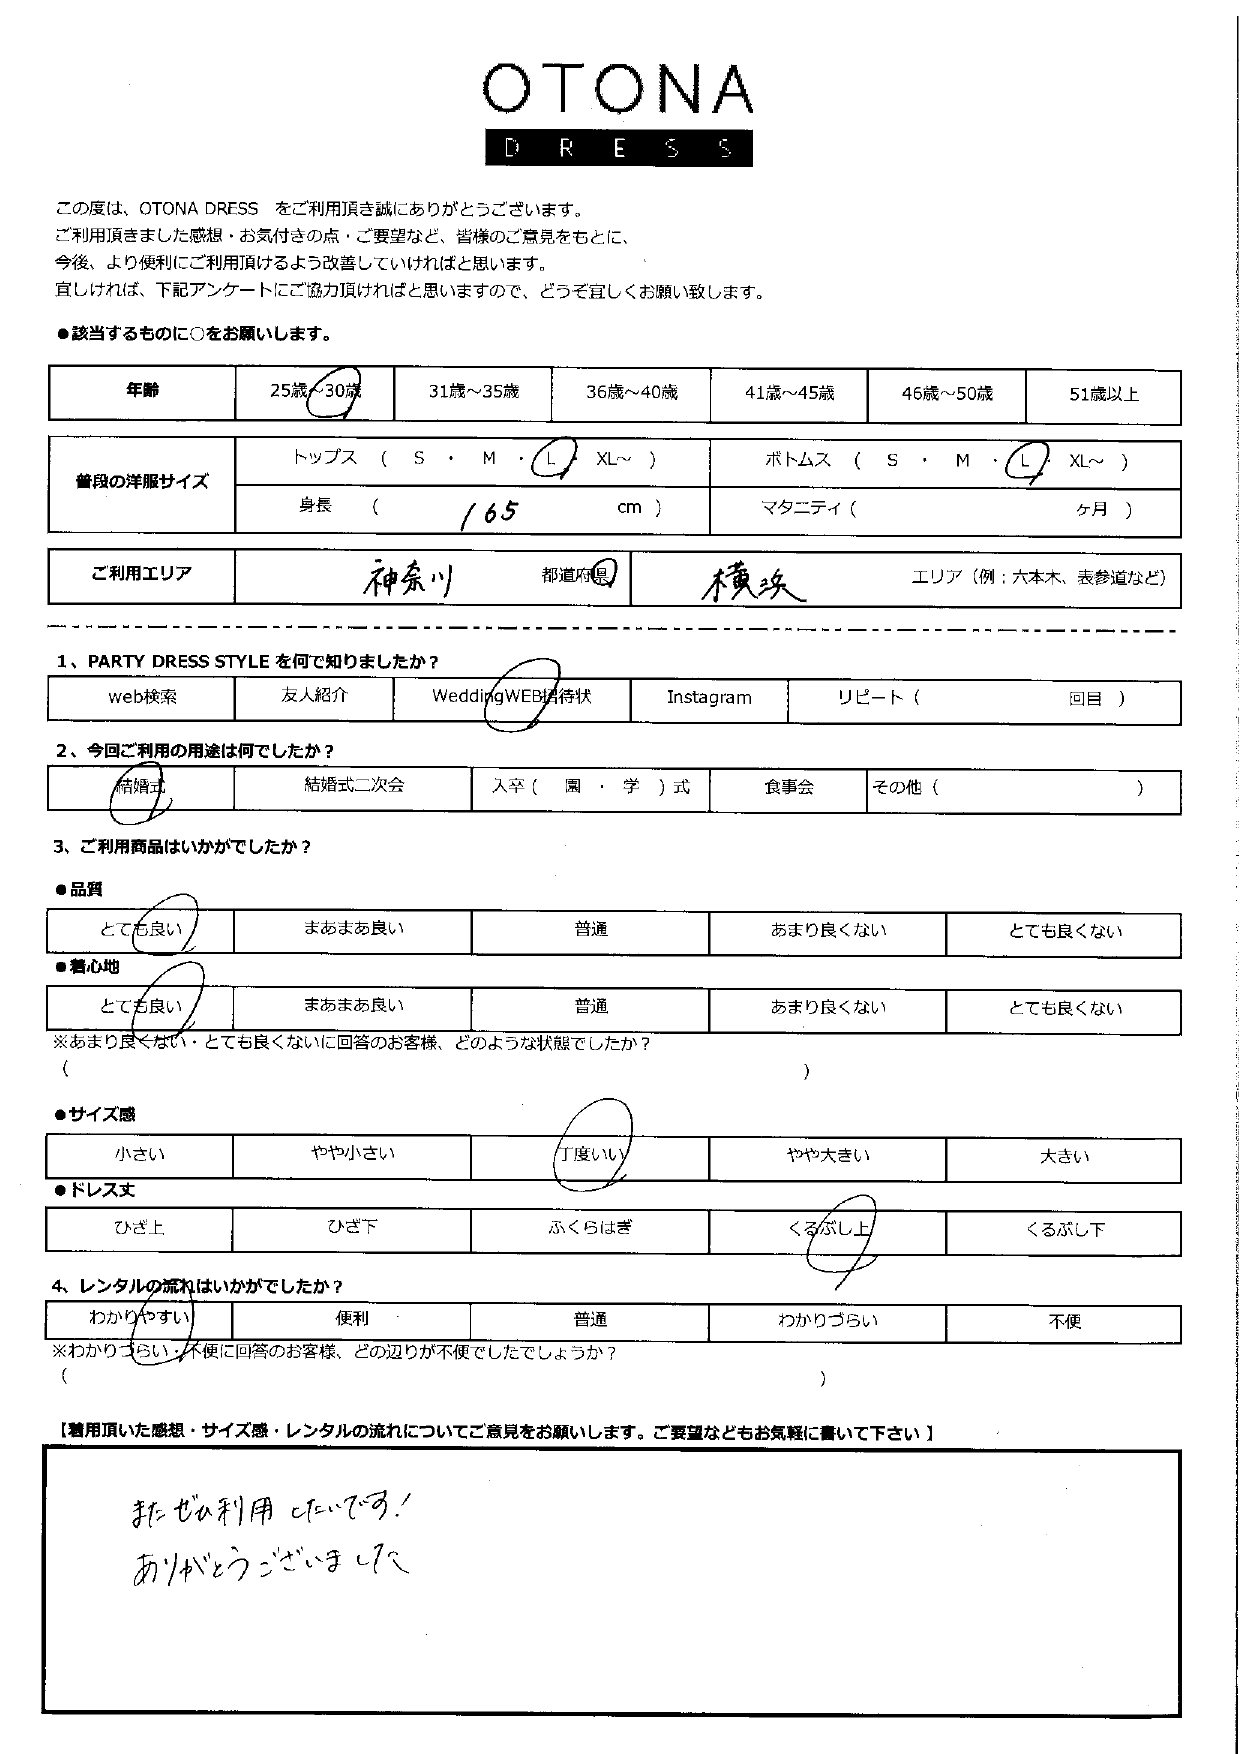 OTONA
DRESS
この度は、OTONA DRESS をご利用頂き誠にありがとうございます。
ご利用頂きました感想・お気付きの点・ご要望など、皆様のご意見をもとに、
今後、より便利にご利用頂けるよう改善していければと思います。
宜しければ、下記アンケートにご協力頂ければと思いますので、どうぞ宜しくお願い致します。
●該当するものに○をお願いします。
年齢 25歳～30歳 31歳～35歳 36歳～40歳 41歳～45歳 46歳～50歳 51歳以上
普段の洋服サイズ トップス ( S ・ M ・ L ・ XL～ ) ボトムス ( S ・ M ・ L ・ XL～ )
身長 ( 165 cm ) マタニティ ( ヶ月 )
ご利用エリア 神奈川 都道府県 横浜 エリア（例；六本木、表参道など）
1、PARTY DRESS STYLE を何で知りましたか？
web検索 友人紹介 WeddingWEB招待状 Instagram リピート ( 回目 )
2、今回ご利用の用途は何でしたか？
結婚式 結婚式二次会 入卒 ( 園 ・ 学 ) 式 食事会 その他 ( )
3、ご利用商品はいかがでしたか？
●品質
とても良い まあまあ良い 普通 あまり良くない とても良くない
●着心地
とても良い まあまあ良い 普通 あまり良くない とても良くない
※あまり良くない・とても良くないに回答のお客様、どのような状態でしたか？
( )
●サイズ感
小さい やや小さい 丁度いい やや大きい 大きい
●ドレス丈
ひざ上 ひざ下 ふくらはぎ くるぶし上 くるぶし下
4、レンタルの流れはいかがでしたか？
わかりやすい 便利 普通 わかりづらい 不便
※わかりづらい・不便に回答のお客様、どの辺りが不便でしたでしょうか？
( )
【着用頂いた感想・サイズ感・レンタルの流れについてご意見をお願いします。ご要望などもお気軽に書いて下さい】
またぜひ利用したいです！
ありがとうございました